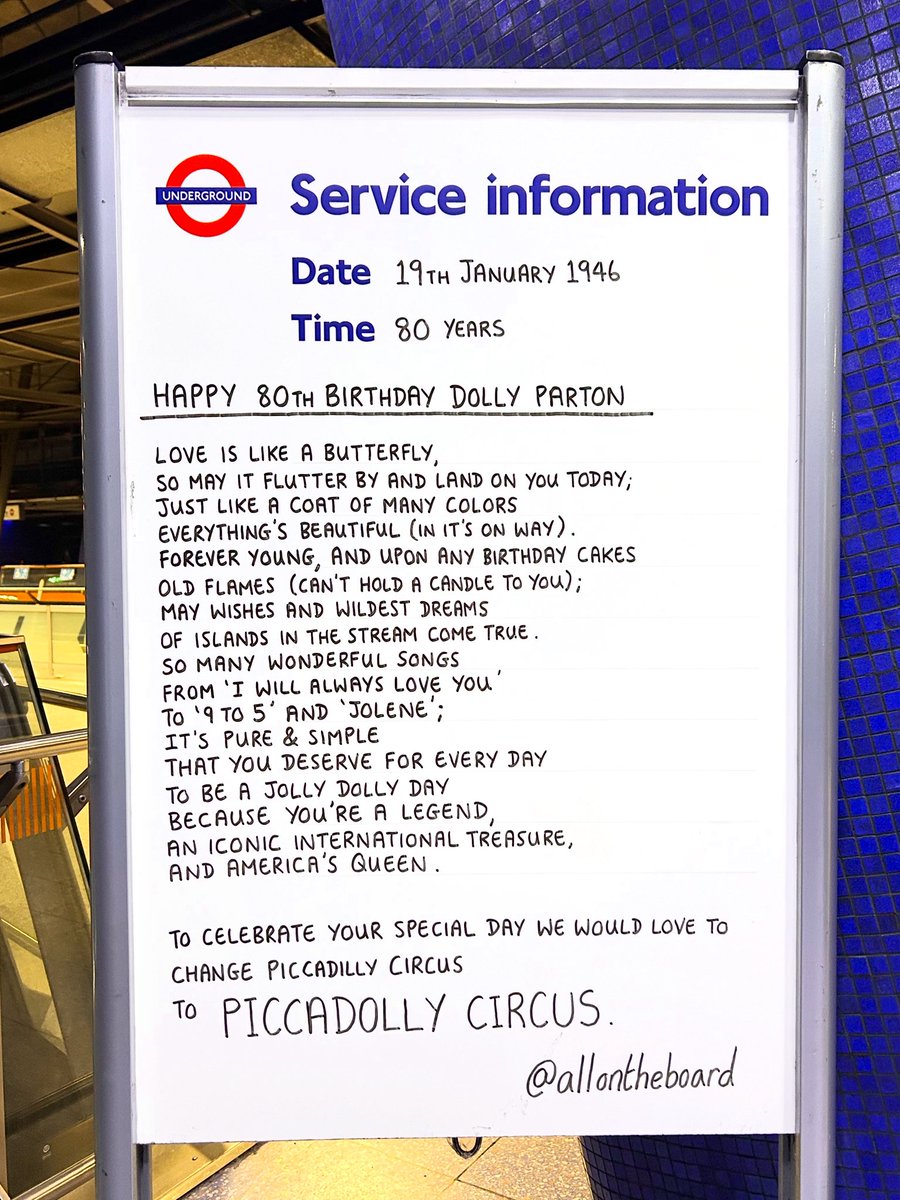 UNDERGROUND
Service information
Date 19TH JANUARY 1946
Time 80 YEARS
HAPPY 80TH BIRTHDAY DOLLY PARTON
LOVE IS LIKE A BUTTERFLY,
SO MAY IT FLUTTER BY AND LAND ON YOU TODAY;
JUST LIKE A COAT OF MANY COLORS
EVERYTHING'S BEAUTIFUL (IN IT'S ON WAY).
FOREVER YOUNG, AND UPON ANY BIRTHDAY CAKES
OLD FLAMES (CAN'T HOLD A CANDLE TO YOU);
MAY WISHES AND WILDEST DREAMS
OF ISLANDS IN THE STREAM COME TRUE.
SO MANY WONDERFUL SONGS
FROM 'I WILL ALWAYS LOVE YOU'
TO '9 TO 5' AND 'JOLENE';
IT'S PURE & SIMPLE
THAT YOU DESERVE FOR EVERY DAY
TO BE A JOLLY DOLLY DAY
BECAUSE YOU'RE A LEGEND,
AN ICONIC INTERNATIONAL TREASURE,
AND AMERICA'S QUEEN.
TO CELEBRATE YOUR SPECIAL DAY WE WOULD LOVE TO
CHANGE PICCADILLY CIRCUS
TO PICCADOLLY CIRCUS.
@allontheboard